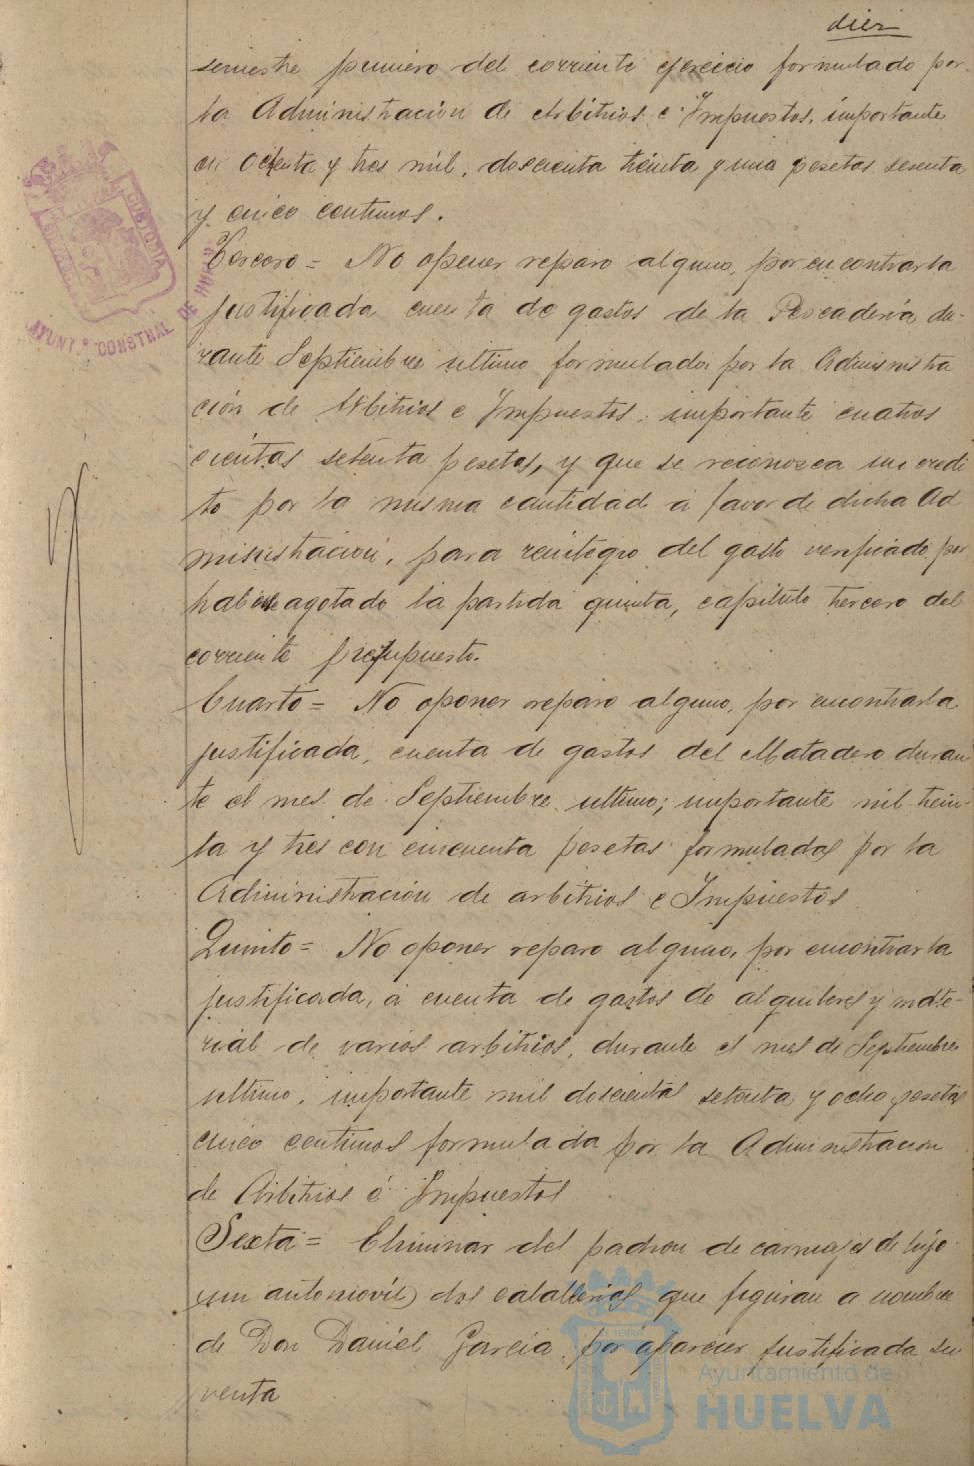 diez
semestre primero del corriente ejercicio formulado por
la Administracion de Arbitrios e Impuestos, importante
en ochenta y tres mil, doscienta treinta y una pesetas sesenta
y cinco centimos.
Tercero = No oponer reparo alguno, por encontrarla
justificada cuenta de gastos de la Pescadería du-
rante Septiembre ultimo formulada por la Administra
ción de Arbitrios e Impuestos, importante cuatros
cientas setenta pesetas, y que se reconozca un credi
to por la misma cantidad a favor de dicha Ad
ministracion, para reintegro del gasto verificado por
haberse agotado la partida quinta, capitulo tercero del
corriente presupuesto.
Cuarto = No oponer reparo alguno, por encontrarla
justificada, cuenta de gastos del Matadero duran
te el mes de Septiembre ultimo; importante mil trein-
ta y tres con cincuenta pesetas formuladas por la
Administración de arbitrios e Impuestos
Quinto = No oponer reparo alguno, por encontrarla
justificada, a cuenta de gastos de alquileres y mate-
rial de varios arbitrios, durante el mes de Septiembre
ultimo, importante mil doscientas setenta y ocho pesetas
cinco centimos formulada por la Administracion
de Arbitrios é Impuestos
Sexta = Eliminar del padron de carruajes de lujo
un automóvil dos caballerias que figuran a nombre
de Don Daniel Garcia, por aparecer justificada su
venta
CUSTODIA
AYUNT.º CONSTNAL DE HUELVA
Ayuntamiento de
HUELVA